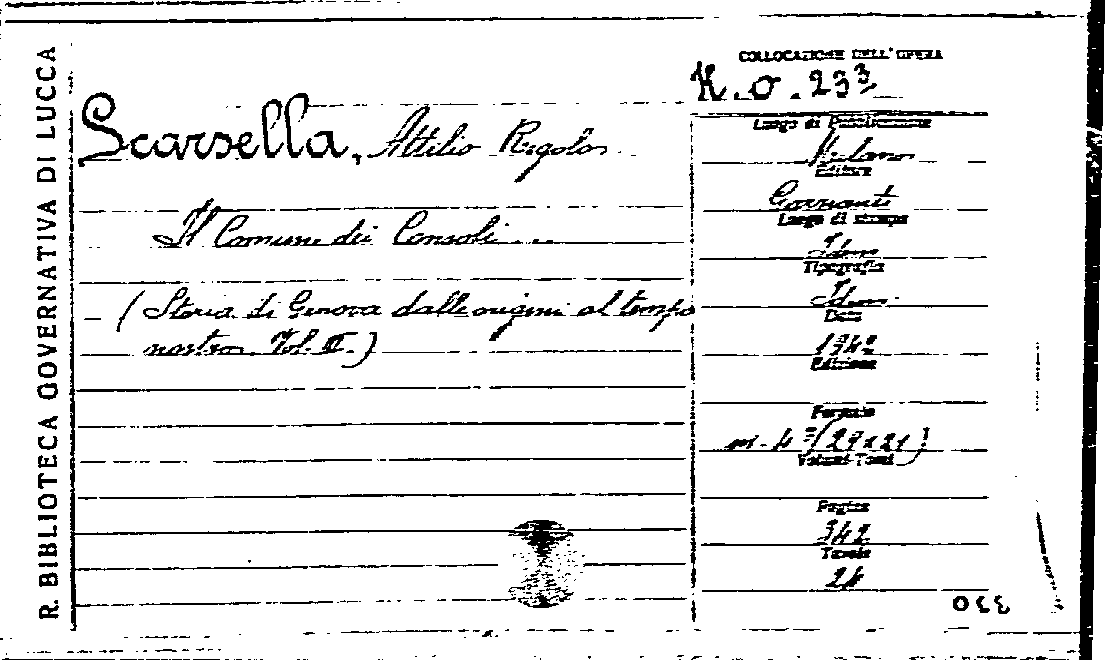 R. BIBLIOTECA GOVERNATIVA DI LUCCA
COLLOCAZIONE DELL'OPERA
K.O.233
Scarsella, Attilio Regolo
Il Comune dei Consoli...
(Storia di Genova dalle origini al tempo
nostro Vol. II.)
Luogo di Pubblicazione
Milano
Editore
Garzanti
Luogo di stampa
Idem
Tipografia
Idem
Data
1942
Edizione
Formato
in-4º (29x21)
Volumi-Tomi
Pagine
342
Tavole
330